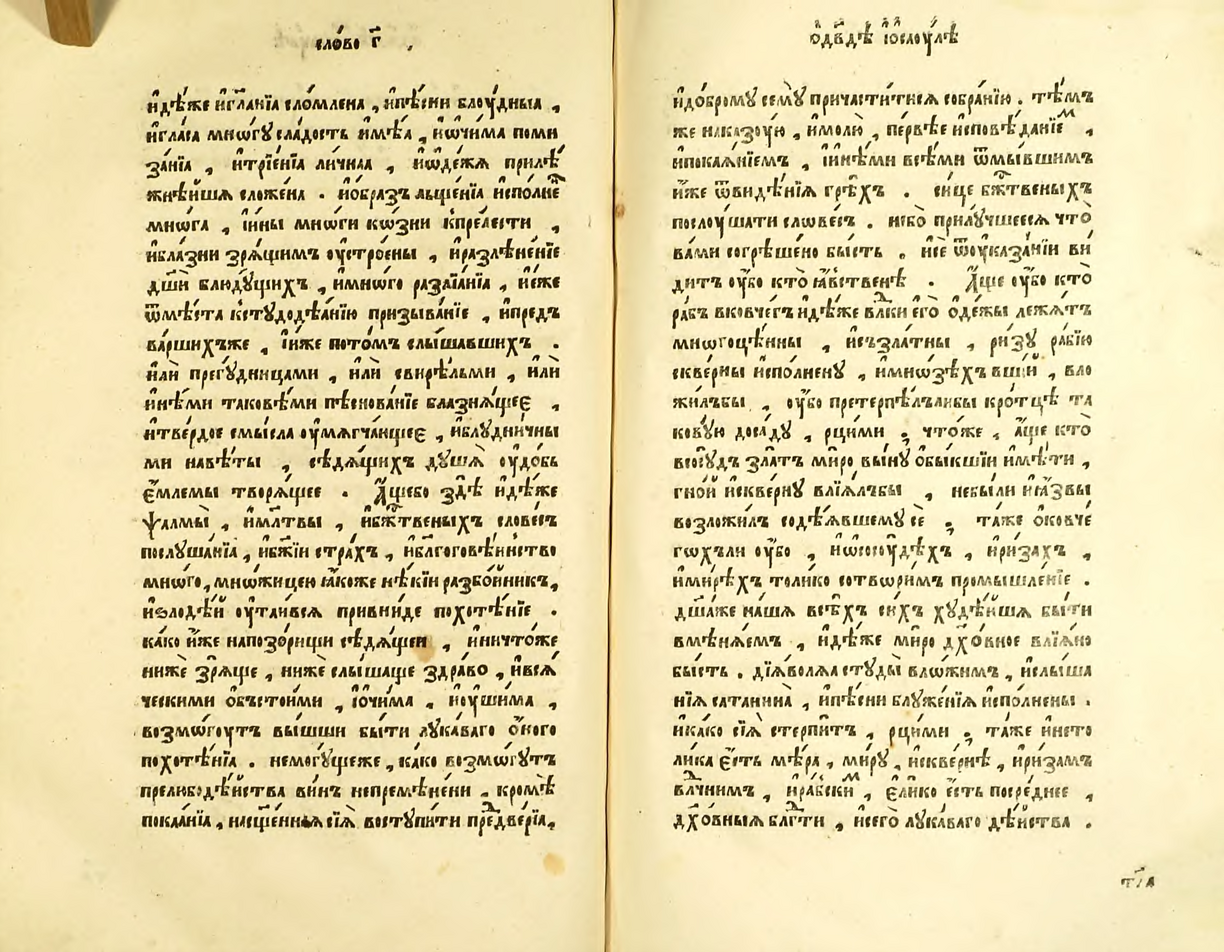 сло́во г҃ .
и҆дѣ́же и҆гла́нїѧ сло́млена , и҆пѣ́сни блоу́дныѧ ,
и҆гла́са мно́гꙋ сла́дость и҆мѣ́ѧ , и҆ѡ҆чи́ма поми
за́нїѧ , и҆тре́нїѧ ли́чнаѧ , и҆ѡ҆де́жѧ прилѣ́
жнѣ́йшѧ сложе́на . и҆ѡ҆́бразъ льще́нїѧ и҆спо́лне
мно́га , і҆и҆́ны мно́ги кѡ́зни кпре́лести ,
и҆бла́зни зрѧ́щимъ оу҆стро́ены , и҆разлѣне́нїе
дш҃и блюдꙋ́щихъ , и҆мно́го разаїѧ́нїѧ , и҆е҆же
ѿмѣ́ста кстꙋдодѣѧ́нїю призыва́нїе , и҆пред
ва́ршихъже , і҆и҆же пото́мъ слы́шавшихъ .
и҆лѝ прегꙋ́дницами , и҆лѝ свирѣ́льми , и҆лѝ
и҆нѣ́ми таковѣ́ми пѣснова́нїе блазнѧ́щеє ,
и҆тве́рдое смы́сла оу҆мѧгча́ющеє , и҆блꙋдни́чны
ми навѣ́ты , сѣдѧ́щихъ дꙋ́шѧ оу҆до́бь
є҆́млемы творѧ́щее . А҆́щебо здѣ̀ и҆дѣ́же
ѱалмы̀ , и҆мл҃твы , и҆бж҃твеныхъ слове́съ
послꙋ́шанїѧ , и҆бж҃їи стра́хъ , и҆бл҃гоговѣ́инство
мно́го , мно́жицею ꙗ҆́коже нѣ́кїи разбо́йникъ ,
и҆ѕлодѣ́й оу҆таи́всѧ привни́де похотѣ́нїе .
ка́ко и҆́же напозо́рищи сѣдѧ́щеи , и҆ничто́же
нижѐ зрѧ́ще , нижѐ слы́шаще здра́во , и҆всѧ́
ческими ѡ҆бъстои́ми , і҆о҆чи́ма , и҆оу҆ши́ма ,
возмо́гоутъ вы́шши бы́ти лꙋка́ваго о҆́ного
похотѣ́нїѧ . немогꙋ́щеже , ка́ко возмо́гꙋтъ
прелюбодѣ́йства ви́нъ непремѣ́нени , кромѣ̀
покаѧ́нїѧ , насщ҃е́ннаѧ сїѧ̀ востꙋпи́ти предве́рїѧ ,
ѡ҆дв҃дѣ і҆ѡ҆слоу́лѣ
и҆до́бромꙋ семꙋ̀ причасти́тисѧ собра́нїю . тѣ́мъ
же наказо́ую , и҆молю̀ , пе́рвѣе и҆сповѣ́данїем ,
и҆покаѧ́нїемъ , і҆и҆нѣ́ми всѣ́ми ѿмы́вшимъ
и҆́же ѿви́дѣнїѧ грѣ́хъ . си́це бж҃твеныхъ
послоу́шати слове́съ . нѣбо̀ прилꙋ́чшеесѧ что̀
ва́ми согрѣше́но бы́сть . и҆сѐ ѿоу҆каза́нїи ви́
дитъ оу҆́бо кто̀ ꙗ҆́вственѣ . А҆́ще оу҆́бо кто̀
ра́бъ вковче́гъ и҆дѣ́же влⷣки є҆го̀ ѻ҆де́жы лежа́тъ
многоцѣ́нны , и҆съзла́тны , ри́зꙋ ра́бїю
скве́рны и҆спо́лненꙋ , и҆мно́зѣхъ вши́й , вло
жи́лъбы , оу҆́бо претерпѣ́лълибы кро́тцѣ та
ковꙋ́ю доса́дꙋ , рци́ми ; что́же , а҆́ще кто̀
всосꙋ́дъ зла́тъ мѵ́ро вы́нꙋ ѡ҆бы́кшїи и҆мѣ́ти ,
гно́й и҆скве́рнꙋ влїѧ́лъбы , небы́ли и҆ꙗ҆́звы
возложи́лъ содѣ́ѧвшемꙋ сѐ ; та́же ѡ҆ковче́
гохъли оу҆́бо , и҆ѡ҆сосоу́дѣхъ , и҆ри́захъ ,
и҆ми́рѣхъ толи́ко сотвори́мъ промышле́нїе .
дш҃аже на́шѧ всѣ́хъ си́хъ хꙋдѣ́йшѧ бы́ти
вмѣнѧ́емъ , и҆дѣ́же мѵ́ро дх҃о́вное влїѧ́но
бы́сть . дїѧ́волѧ стꙋды̀ вло́жимъ , и҆слы́ша
нїѧ сатанина̀ , и҆пѣ́сни блꙋже́нїѧ и҆спо́лнены .
и҆ка́ко сїѧ̀ сте́рпитъ , рци́ми ; та́же и҆нето
ли́ка є҆́сть мѣ́ра , мѵ́рꙋ , и҆скве́рнѣ , и҆ри́замъ
влⷣчнимъ , и҆ра́бским , є҆ли́ко є҆́сть посреднее ,
дх҃о́вныѧ блг҃ти , и҆сего̀ лꙋка́ваго дѣ́йства .